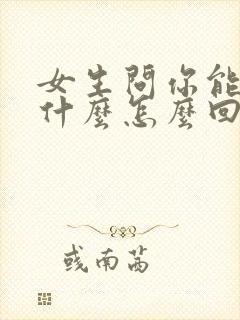 女生問你能
什麼怎麼回
彧南茜